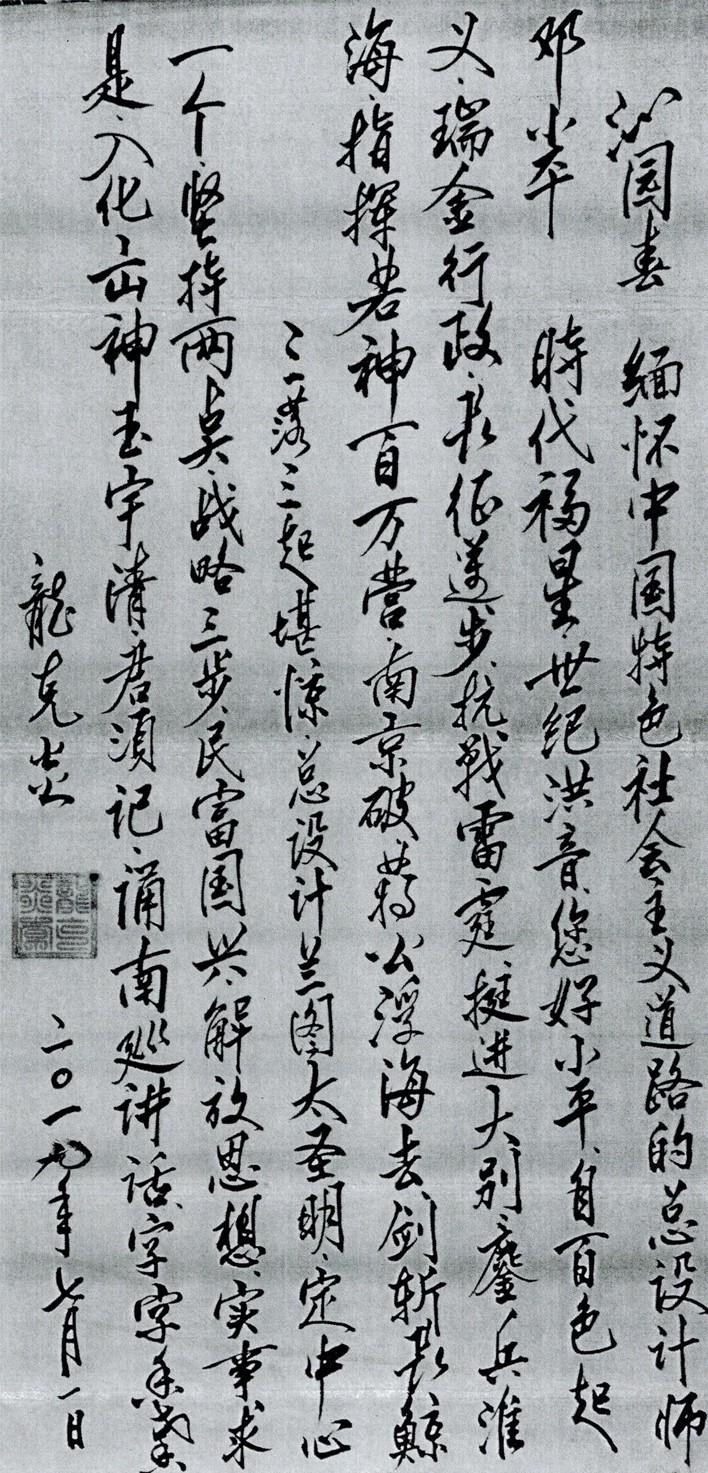 沁园春 缅怀中国特色社会主义道路的总设计师
邓小平 時代福星、世纪洪音、您好小平自百色起
义、瑞金行政、长征逆步、抗戰雷霆挺进大别、鏖兵淮
海、指揮若神百万营、南京破、蒋公浮海去、剑斩长鲸
三落三起堪惊总设计兰图太圣明、定中心
一个、坚持两点、战略三步、民富国兴、解放思想、实事求
是、入化出神玉宇清、君须记、诵南巡讲话、字字
龍克
二〇一九年七月一日